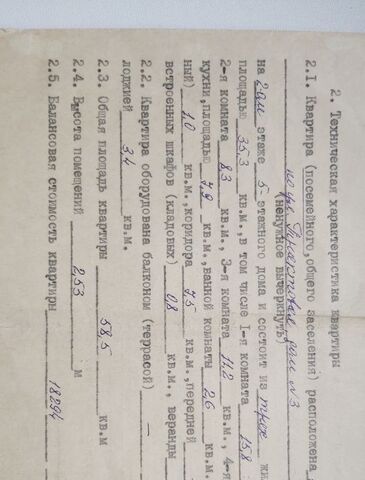 2. Техническая характеристика квартиры
2.1. Квартира (посемейного, общего заселения) расположена
по ул. дом №3
(ненужное вычеркнуть)
на 2-ом этаже 5-этажного дома и состоит из трех жи
площадью 35,3 кв.м., в том числе 1-я комната 15,8
2-я комната 8,3 кв.м., 3-я комната 11,2 кв.м., 4-я
кухни, площадью 7,9 кв.м., ванной комнаты 2,6 кв.м.
ный) 1,0 кв.м., коридора 7,5 кв.м., передней
встроенных шкафов (кладовых) 0,8 кв.м., веранды
2.2. Квартира оборудована балконом (террасой) —
лоджией 3,4 кв.м.
2.3. Общая площадь квартиры 58,5 кв.м
2.4. Высота помещений 2,53 м
2.5. Балансовая стоимость квартиры 18294